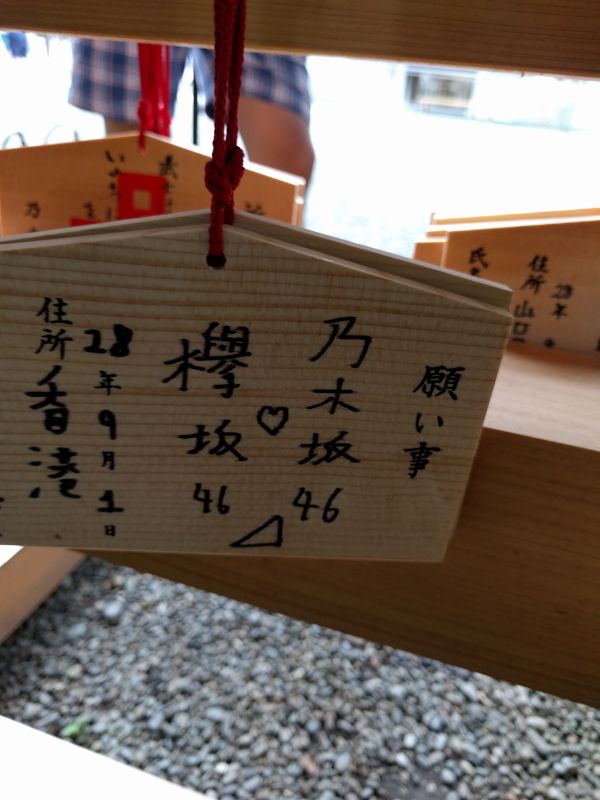 願い事
乃木坂46
欅坂46
28年9月1日
住所 香港
住所
28年